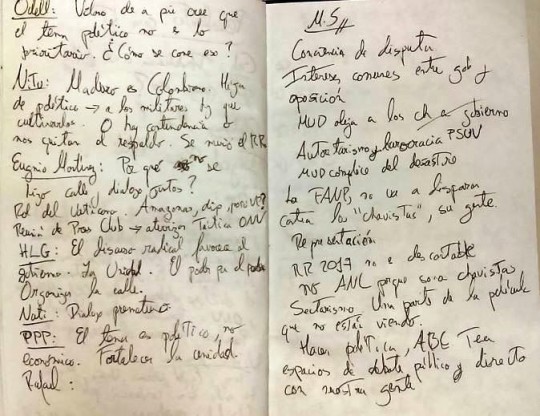 Odell: Vdno de a pie cree que
el tema político no es lo
prioritario. ¿Cómo se come eso?
Nitu: Maduro es Colombiano. Hija
de política → a los militares hy que
cultivarlos. O hay contundencia o
nos quitan el respaldo. Se murió el RR
Eugenio Martínez: Por qué no se
hizo calle y dialogo juntos?
Rol del Vaticano. Amazonas, dip,
Reunión de Pros Club → Táctica ONU
HLG: El discurso radical favorece al
gobierno. La Unidad. El poder pa el poder
Organizar la calle.
Nati: Dialogo prematuro
PPP: El tema es político, no
económico. Fortalecer la unidad.
Rafael:
M.S//
Conciencia de disputa
Intereses comunes entre gob y
oposición
MUD aleja a los ch a gobierno
Autoritarismo y burocracia PSUV
MUD cómplice del desastre
La FANB, no va a disparar
contra los "chavistas", su gente.
Representación.
RR 2017 no es descartable
no ANC porque sería chavistas
Sectarismo. Una parte de la película
que no están viendo.
Hacer política, ABC Tea
espacios de debate público y directo
con nuestra gente